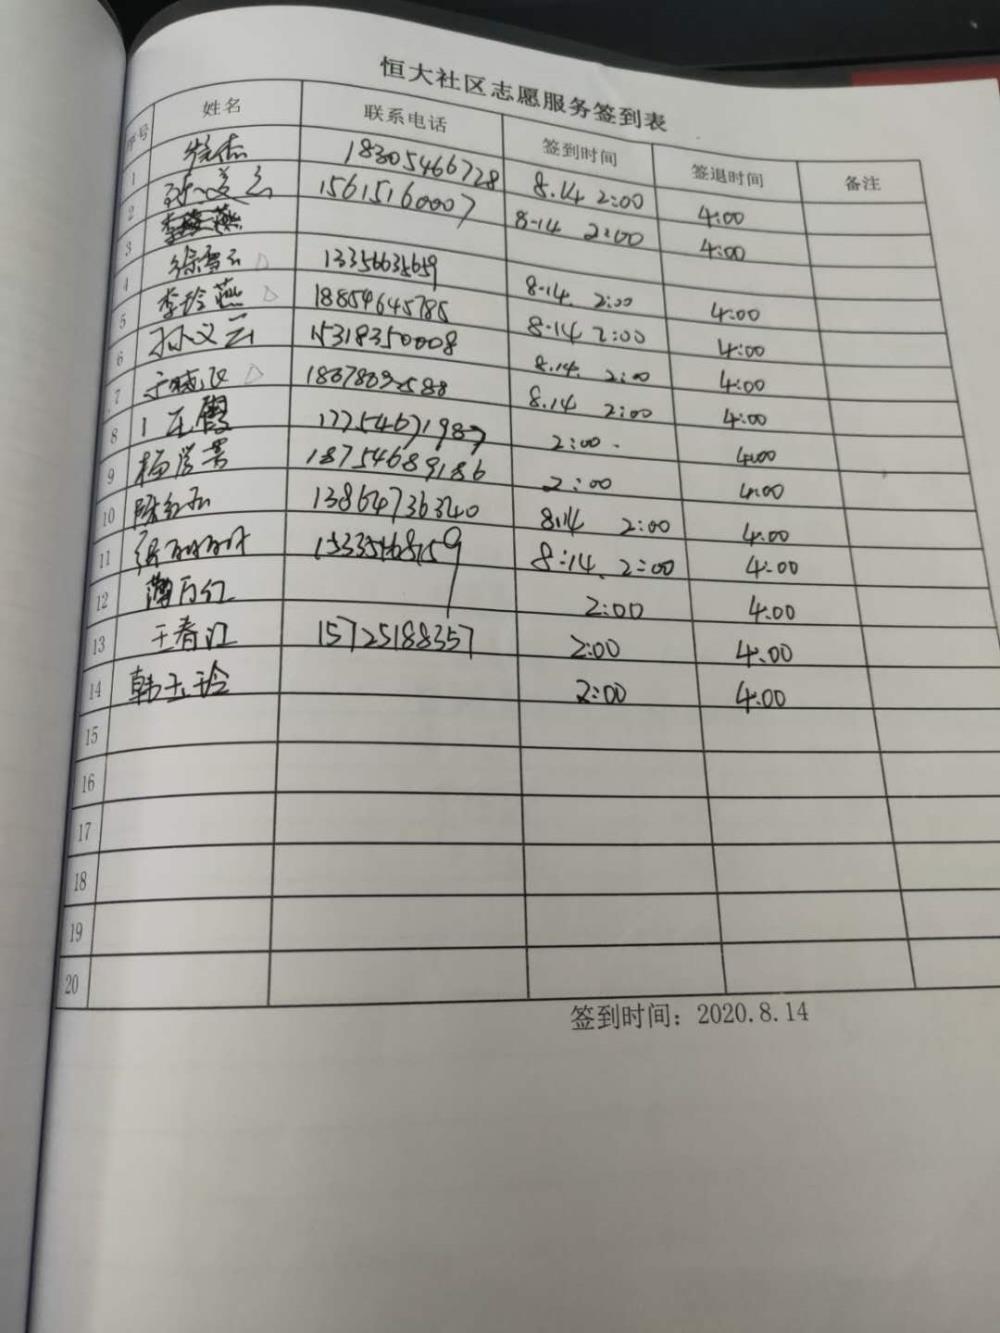 恒大社区志愿服务签到表
序号 姓名 联系电话 签到时间 签退时间 备注
1 18305466728 8.14 2:00 4:00
2 15615160007 8-14 2:00 4:00
3
4 8-14 2:00 4:00
5 李玲燕 18854645785 8-14 2:00 4:00
6 孙义云 15318350008 8.14 2:00 4:00
7 8.14 2:00 4:00
8 17254671987 2:00 4:00
9 18754689186 2:00 4:00
10 13864736340 8.14 2:00 4:00
11 8:14 2:00 4:00
12 2:00 4:00
13 王春江 15725188357 2:00 4:00
14 韩玉玲 2:00 4:00
15
16
17
18
19
20
签到时间：2020.8.14